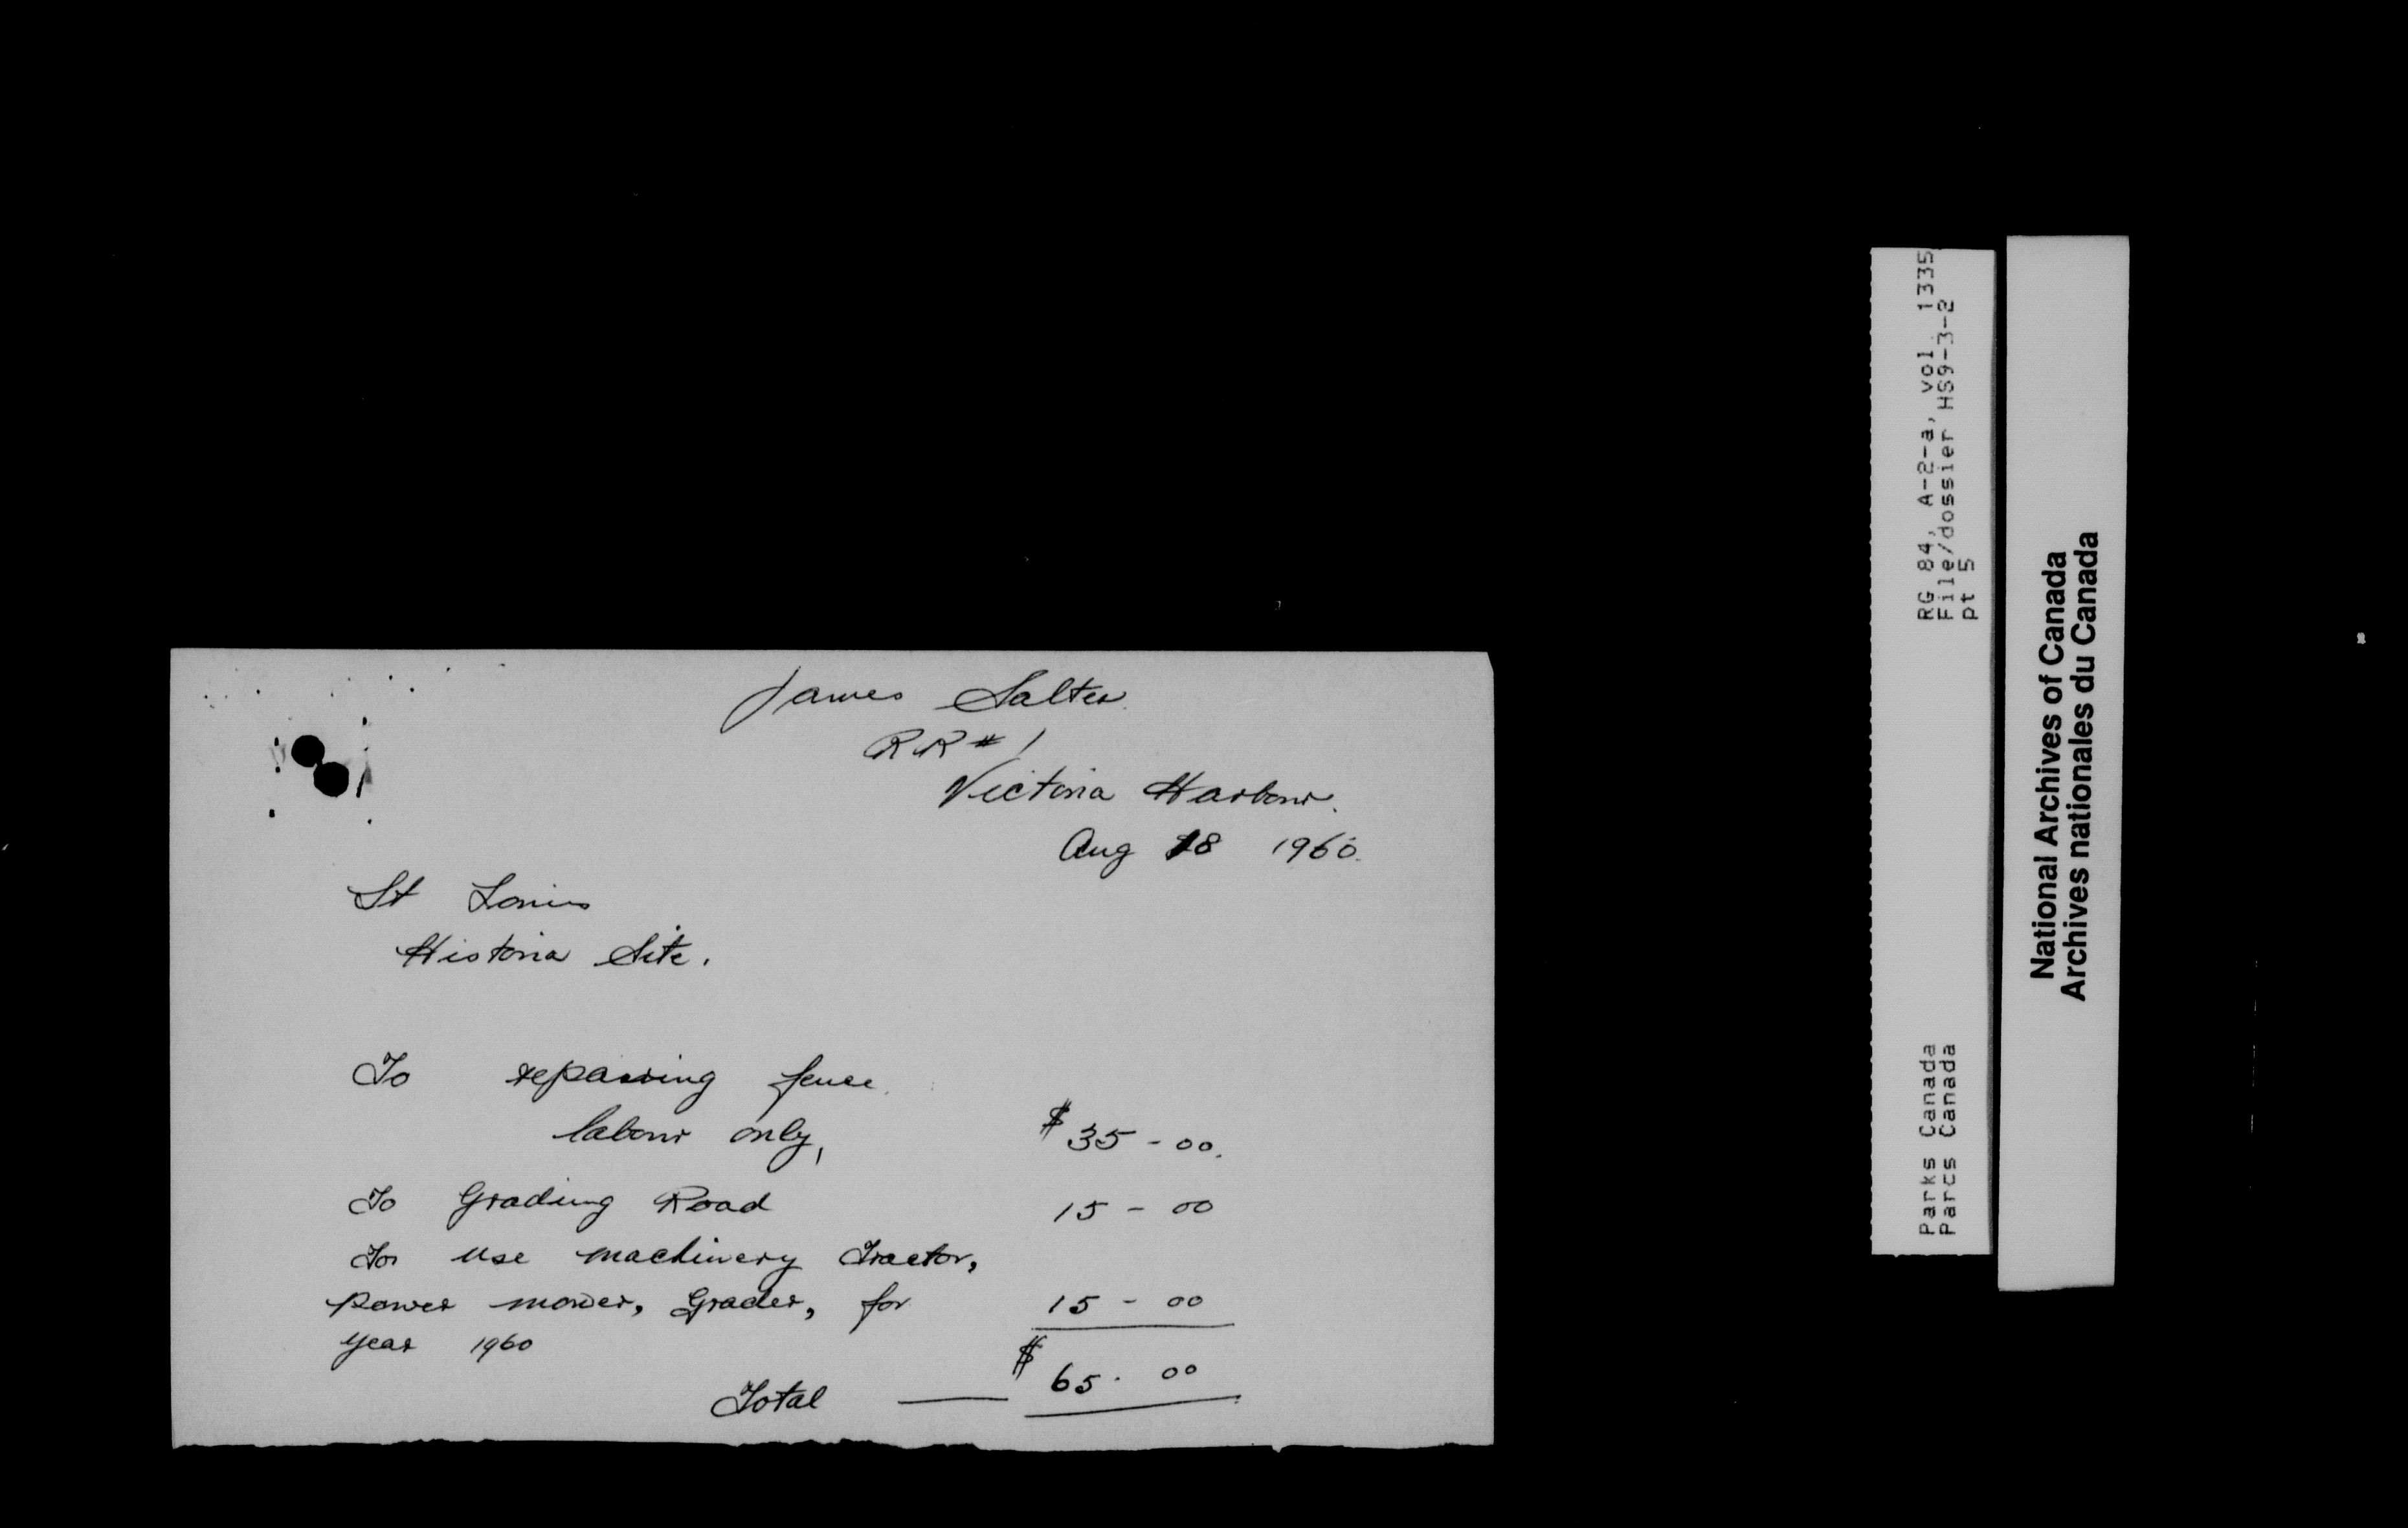 James Salter.
RR # 1
Victoria Harbour.
Aug 18 1960.
St Louis
Historia Site.
To repairing fence.
labour only,
$35-00.
To Grading Road 15-00
For use machinery Tractor,
Power mower, Grader, for 15-00
year 1960
Total — $65.00
RG 84, A-2-a, vol. 1335
File/dossier HS9-3-2
pt 5
Parks Canada
Parcs Canada
National Archives of Canada
Archives nationales du Canada